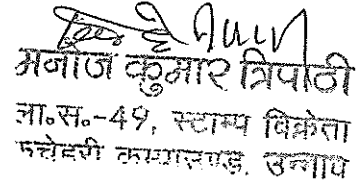 मनोज कुमार त्रिपाठी
ला०स०-49, स्टाम्प विक्रेता
कचेहरी उन्नाव